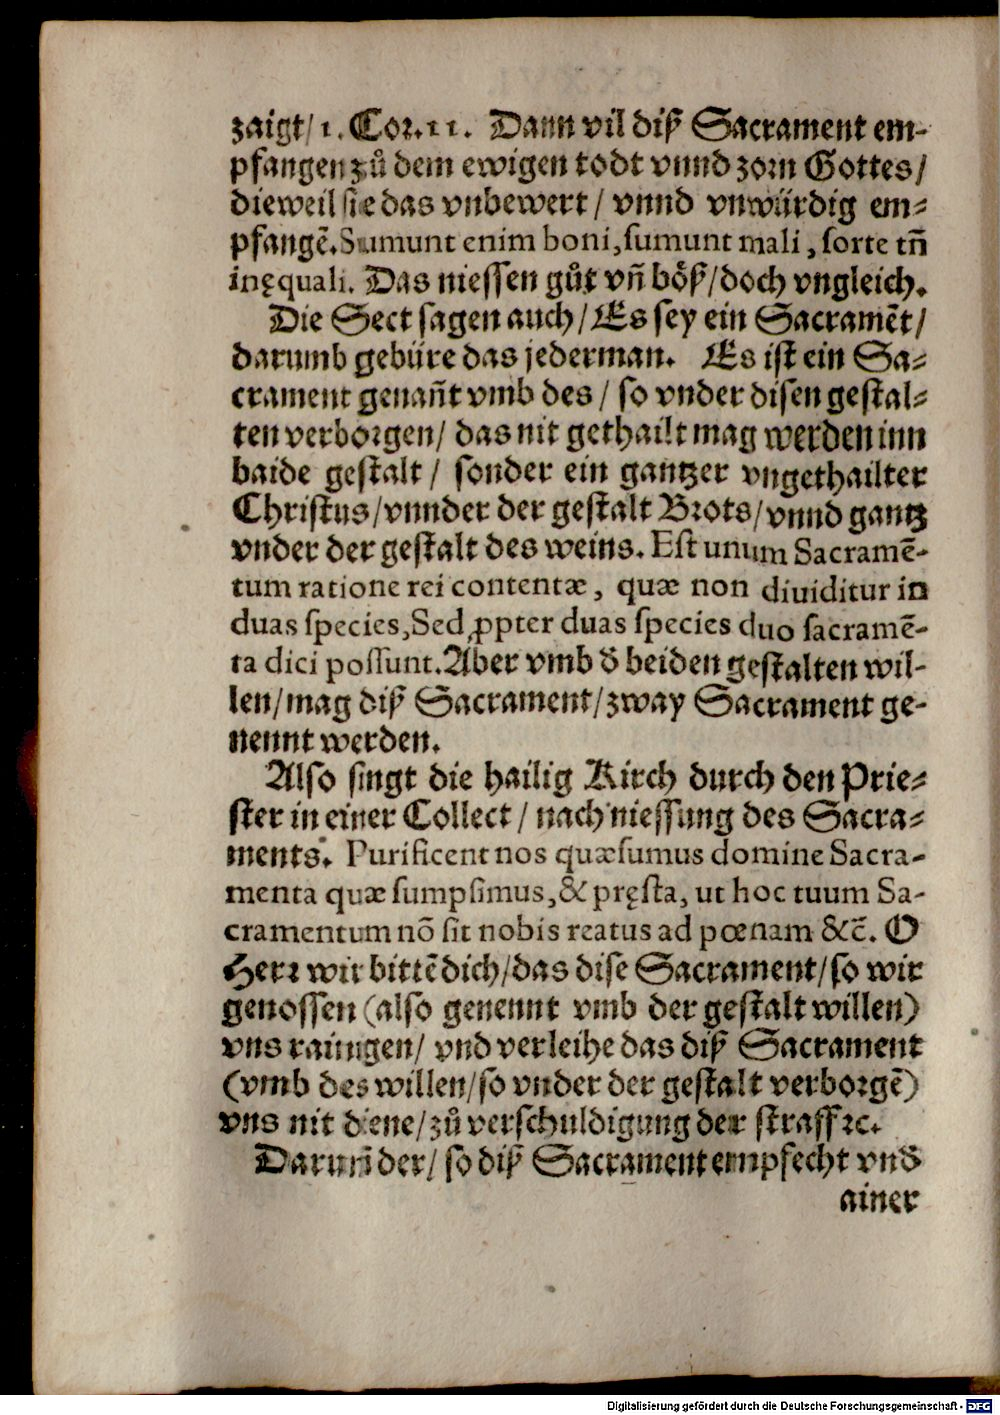 zaigt/ 1. Cor. 11. Dann vil diß Sacrament em-
pfangen zů dem ewigen todt vnnd zorn Gottes/
dieweil sie das vnbewert/ vnnd vnwürdig em-
pfangẽ. Sumunt enim boni, sumunt mali, sorte tñ
inęquali. Das niessen gůt vñ böß/ doch vngleich.
Die Sect sagen auch/ Es sey ein Sacramẽt/
darumb gebüre das jederman. Es ist ein Sa-
crament genañt vmb des/ so vnder disen gestal-
ten verborgen/ das nit gethailt mag werden inn
baide gestalt/ sonder ein gantzer vngethailter
Christus/ vnnder der gestalt Brots/ vnnd gantz
vnder der gestalt des weins. Est unum Sacramẽ-
tum ratione rei contentæ, quæ non diuiditur in
duas species, Sed ꝓpter duas species duo sacramẽ-
ta dici possunt. Aber vmb d̕ beiden gestalten wil-
len/ mag diß Sacrament/ zway Sacrament ge-
nennt werden.
Also singt die hailig Kirch durch den Prie-
ster in einer Collect/ nach niessung des Sacra-
ments. Purificent nos quæsumus domine Sacra-
menta quæ sumpsimus, & pręsta, ut hoc tuum Sa-
cramentum nõ sit nobis reatus ad pœnam &c̃. O
Herr wir bittẽ dich/ das dise Sacrament/ so wir
genossen (also genennt vmb der gestalt willen)
vns rainigen/ vnd verleihe das diß Sacrament
(vmb des willen/ so vnder der gestalt verborgẽ)
vns nit diene/ zů verschuldigung der straff ꝛc.
Daruñ der/ so diß Sacrament empfecht vnd̕
ainer
Digitalisierung gefördert durch die Deutsche Forschungsgemeinschaft - DFG